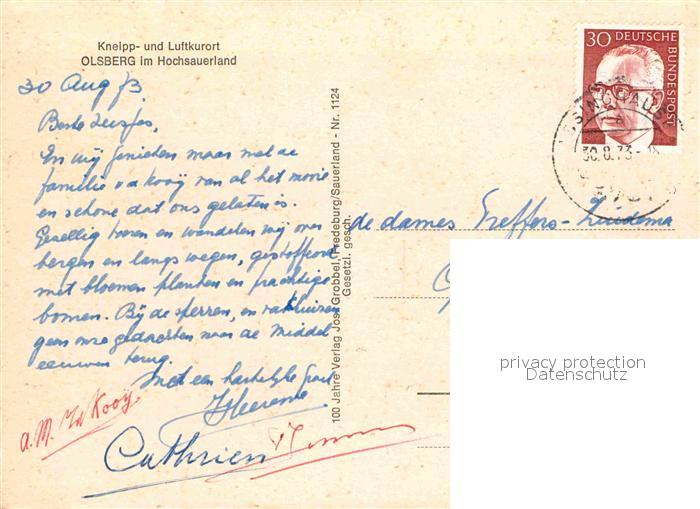 Kneipp- und Luftkurort
OLSBERG im Hochsauerland
30 Aug 73
Beste
En wij genieten maar met de
familie v d Kooy van al het mooie
en schone dat ons gelaten is.
Gezellig toeren en wandelen wij over
bergen en langs wegen, gestoffeerd
met bloemen planten en prachtige
bomen. Bij de sperren, en vakhuizen
gaan onze gedachten naar de Middel
eeuwen terug.
Met een hartelijke groet
Heerema
A.M. vd Kooy
Cathrien
100 Jahre Verlag Jos. Grobbel, Fredeburg/Sauerland - Nr. 1124
Gesetzl. gesch.
30 DEUTSCHE
BUNDESPOST
30.8.73
de dames Treffers - Zuidema
privacy protection
Datenschutz